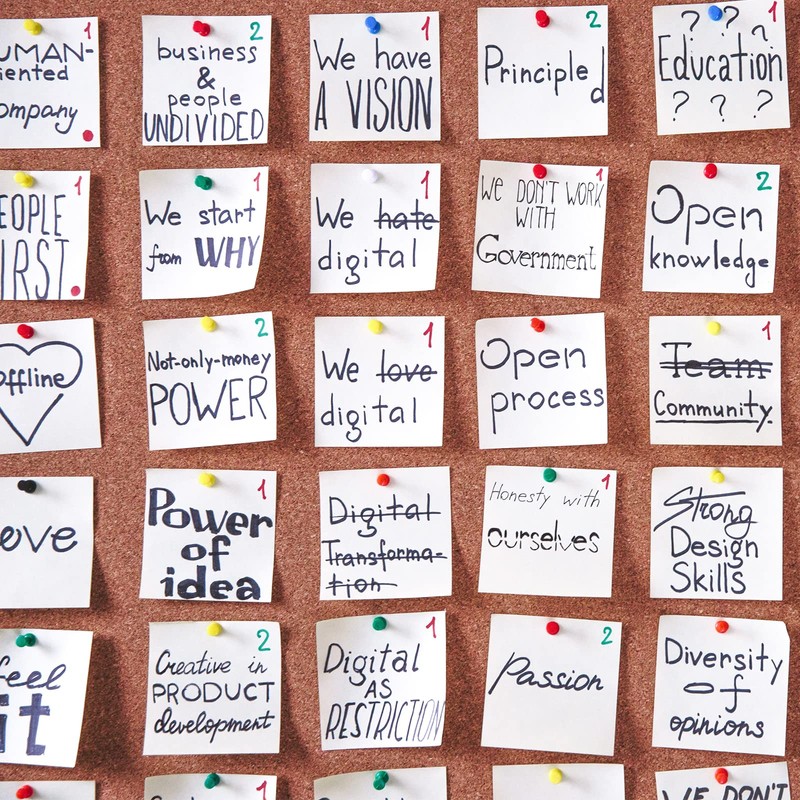 UMAN-
iented
ompany
2
business
&
people
UNDIVIDED
1
We have
A VISION
2
Principled
1
? ? ?
Education
? ? ?
1
EOPLE
IRST.
1
We start
from WHY
1
We hate
digital
1
WE DON'T WORK
WITH
Government
2
Open
knowledge
offline
2
Not-only-money
POWER
1
We love
digital
Open
process
1
Team
Community.
ove
1
Power
of
idea
Digital
Transforma-
tion
1
Honesty with
ourselves
Strong
Design
Skills
feel
it
2
Creative in
PRODUCT
development
1
Digital
AS
RESTRICTION
2
Passion
Diversity
of
opinions
1
1
WE DON'T